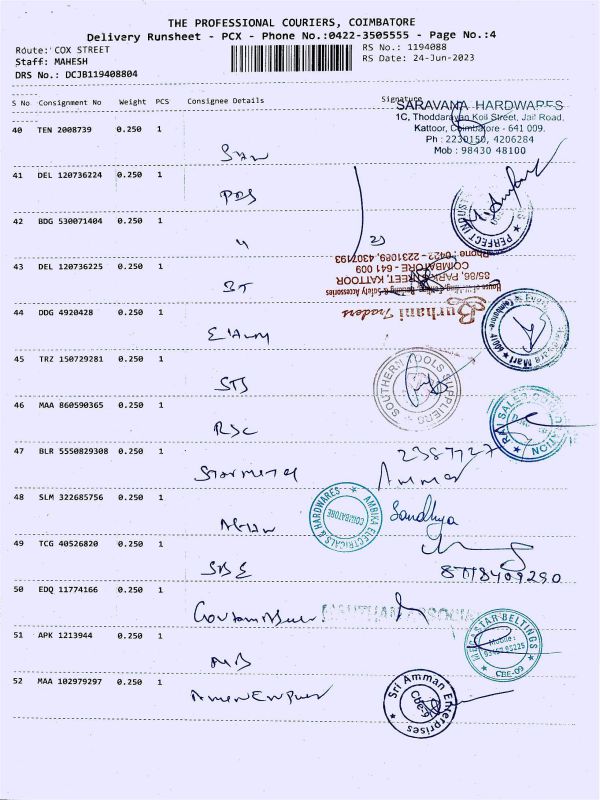 THE PROFESSIONAL COURIERS, COIMBATORE
Delivery Runsheet - PCX - Phone No.:0422-3505555 - Page No.:4
Route: COX STREET
RS No.: 1194088
Staff: MAHESH
RS Date: 24-Jun-2023
DRS No.: DCJB119408804
S No Consignment No Weight PCS Consignee Details Signature
SARAVANA HARDWARES
1C, Thoddarayan Koil Street, Jail Road,
Kattoor, Coimbatore - 641 009.
Ph : 2230150, 4206284
Mob : 98430 48100
40 TEN 2008739 0.250 1
41 DEL 120736224 0.250 1
PDS
PERFECT INDUST
42 BDG 530071404 0.250 1
"
43 DEL 120736225 0.250 1
BT
Burhani Traders
House of Welding, Cutting, Building & Safety Accessories
85/86, PARK STREET, KATTOOR
COIMBATORE - 641 009
Phone : 0422 - 2231089, 4307193
44 DDG 4920428 0.250 1
Hardware Mart
45 TRZ 150729281 0.250 1
STS
SOUTHERN TOOLS SUPPLIERS
46 MAA 860590365 0.250 1
RSC
RAJ SALES CORPORATION
47 BLR 5550829308 0.250 1
Starmetal
2387727
Ammar
48 SLM 322685756 0.250 1
AMBIKA ELECTRICALS & HARDWARES
COIMBATORE
Sandhya
49 TCG 40526820 0.250 1
SBE
8778409290
50 EDQ 11774166 0.250 1
51 APK 1213944 0.250 1
MB
MEGASTAR BELTINGS
Mobile :
CBE-09
52 MAA 102979297 0.250 1
Sri Amman Enterprises
CBE-9